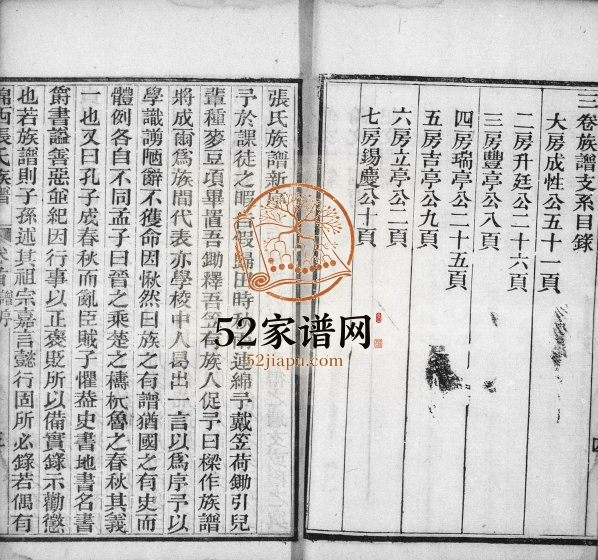 三卷族譜支系目錄
大房成性公五十一頁
二房升廷公二十六頁
三房豐亭公八頁
四房瑞亭公二十五頁
五房吉亭公九頁
六房立亭公二頁
七房錫慶公十頁
張氏族譜新序
予於課徒之暇告假歸田時連綿予戴笠荷鋤引兒
輩種麥豆項畢置吾鋤釋吾笠有族人促予曰樑作族譜
將成爾爲族間代表亦學校中人曷出一言以爲序予以
學識謭陋辭不獲命因愀然曰族之有譜猶國之有史而
體例各自不同孟子曰晉之乘楚之檮杌魯之春秋其義
一也又曰孔子成春秋而亂臣賊子懼葢史書地書名書
爵書謚善惡並紀因行事以正褒貶所以備實錄示勸懲
也若族譜則子孫述其祖宗嘉言懿行固所必錄若偶有
錦西張氏族譜
卷首 譜序
52家谱网
52jiapu.com